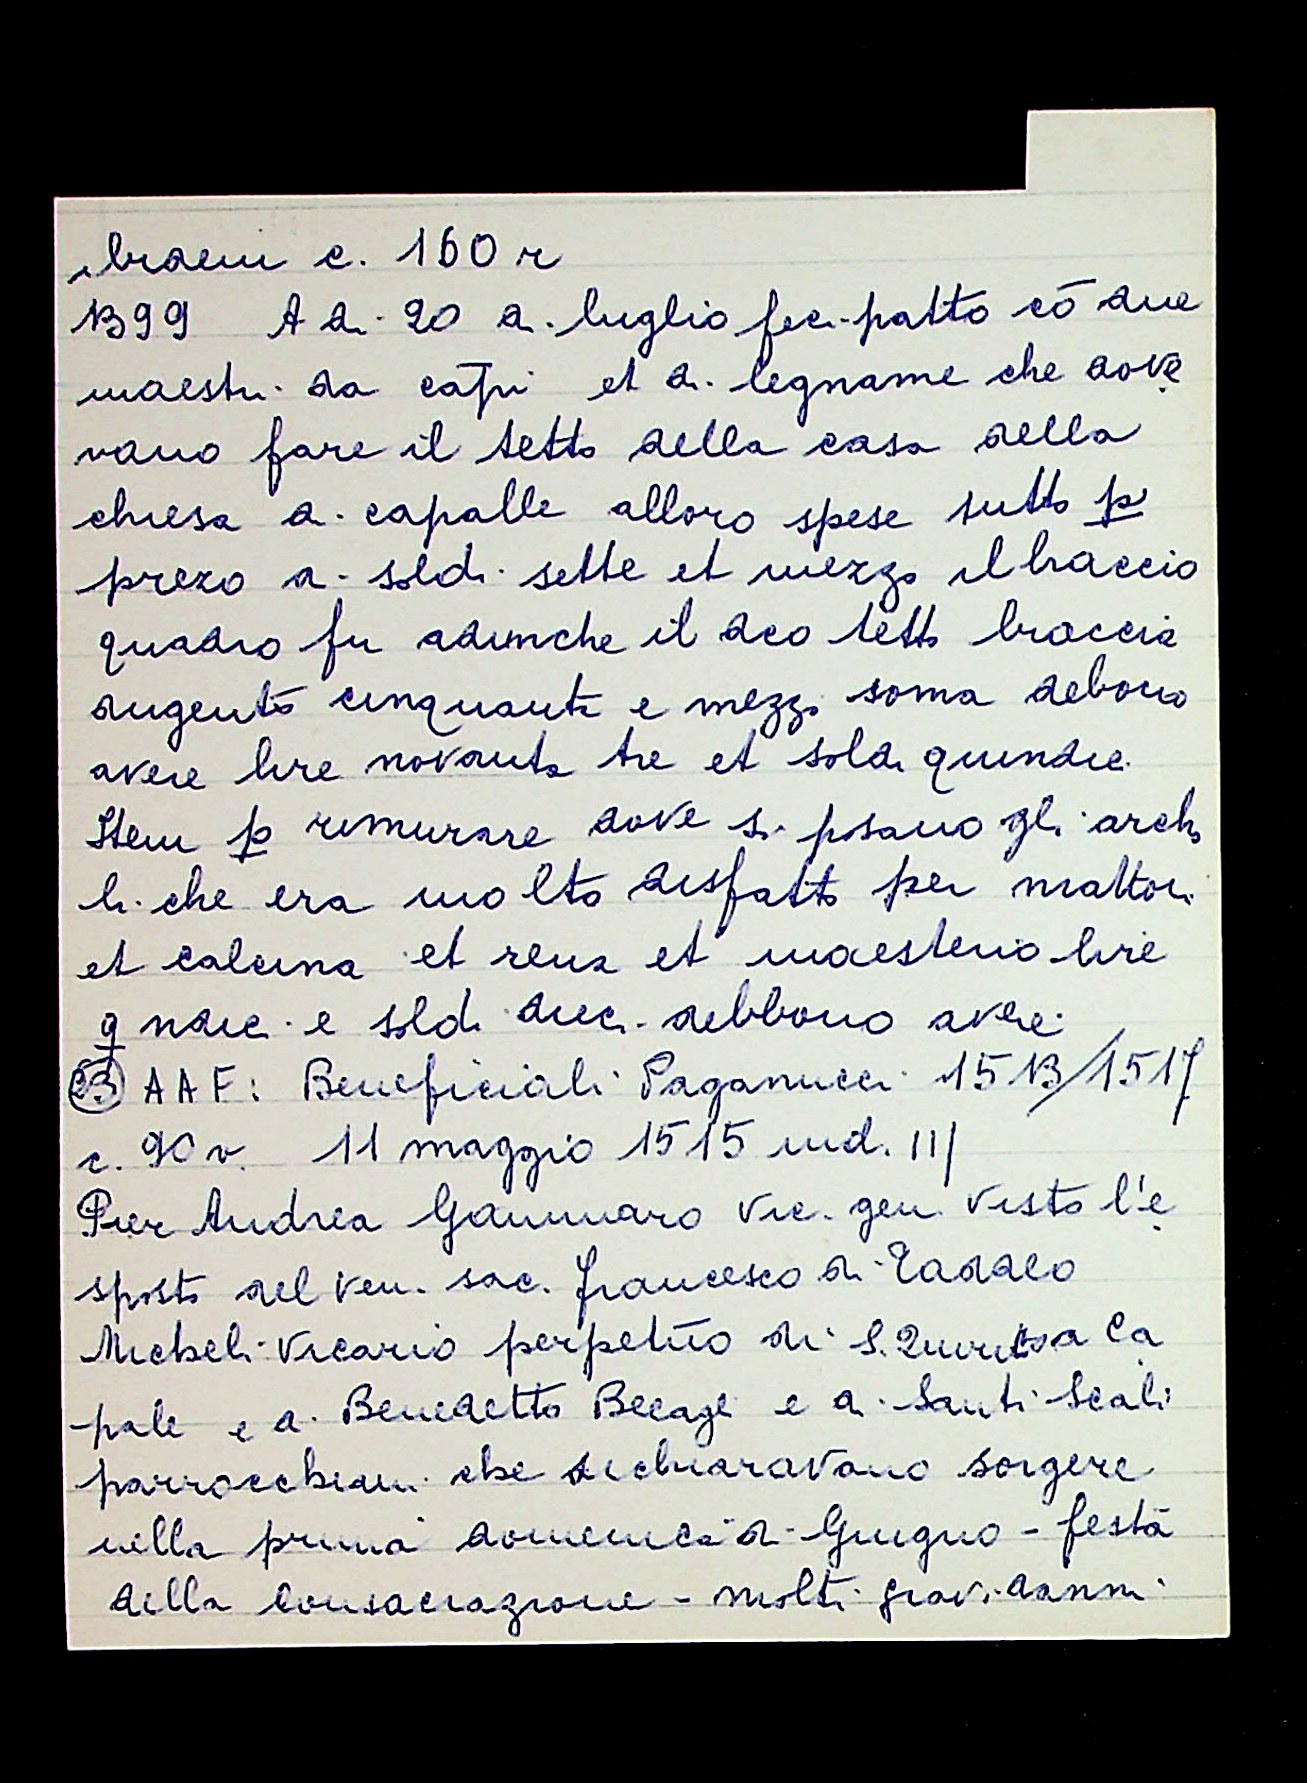 ibidem c. 160 r
1399 A di 20 di luglio feci patto cō due
maestri da cāpi et di legname che dove
vano fare il tetto della casa della
chiesa di capalle alloro spese tutto p
prezo di soldi sette et mezzo il braccio
quadro fu adunche il dco tetto braccia
dugento cinquanta e mezzo soma debono
avere lire novanta tre et soldi quindici
Item p rimurare dove si posano gli arch
li che era molto disfatto per mattoni
et calcina et rena et maesterio lire
q ndici e soldi dieci debbono avere
23 AAF: Beneficiali Paganucci 1513/1517
c. 90 v. 11 maggio 1515 ind. III
Pier Andrea Gammaro vic. gen. visto l'e
sposto del ven. sac. Francesco di Taddeo
Micheli vicario perpetuo di S. Quirico a Ca
pale e di Benedetto e di Santi Scali
parrocchiani che dichiaravano sorgere
nella prima domenica di Giugno - festa
della Consacrazione - molti gravi danni